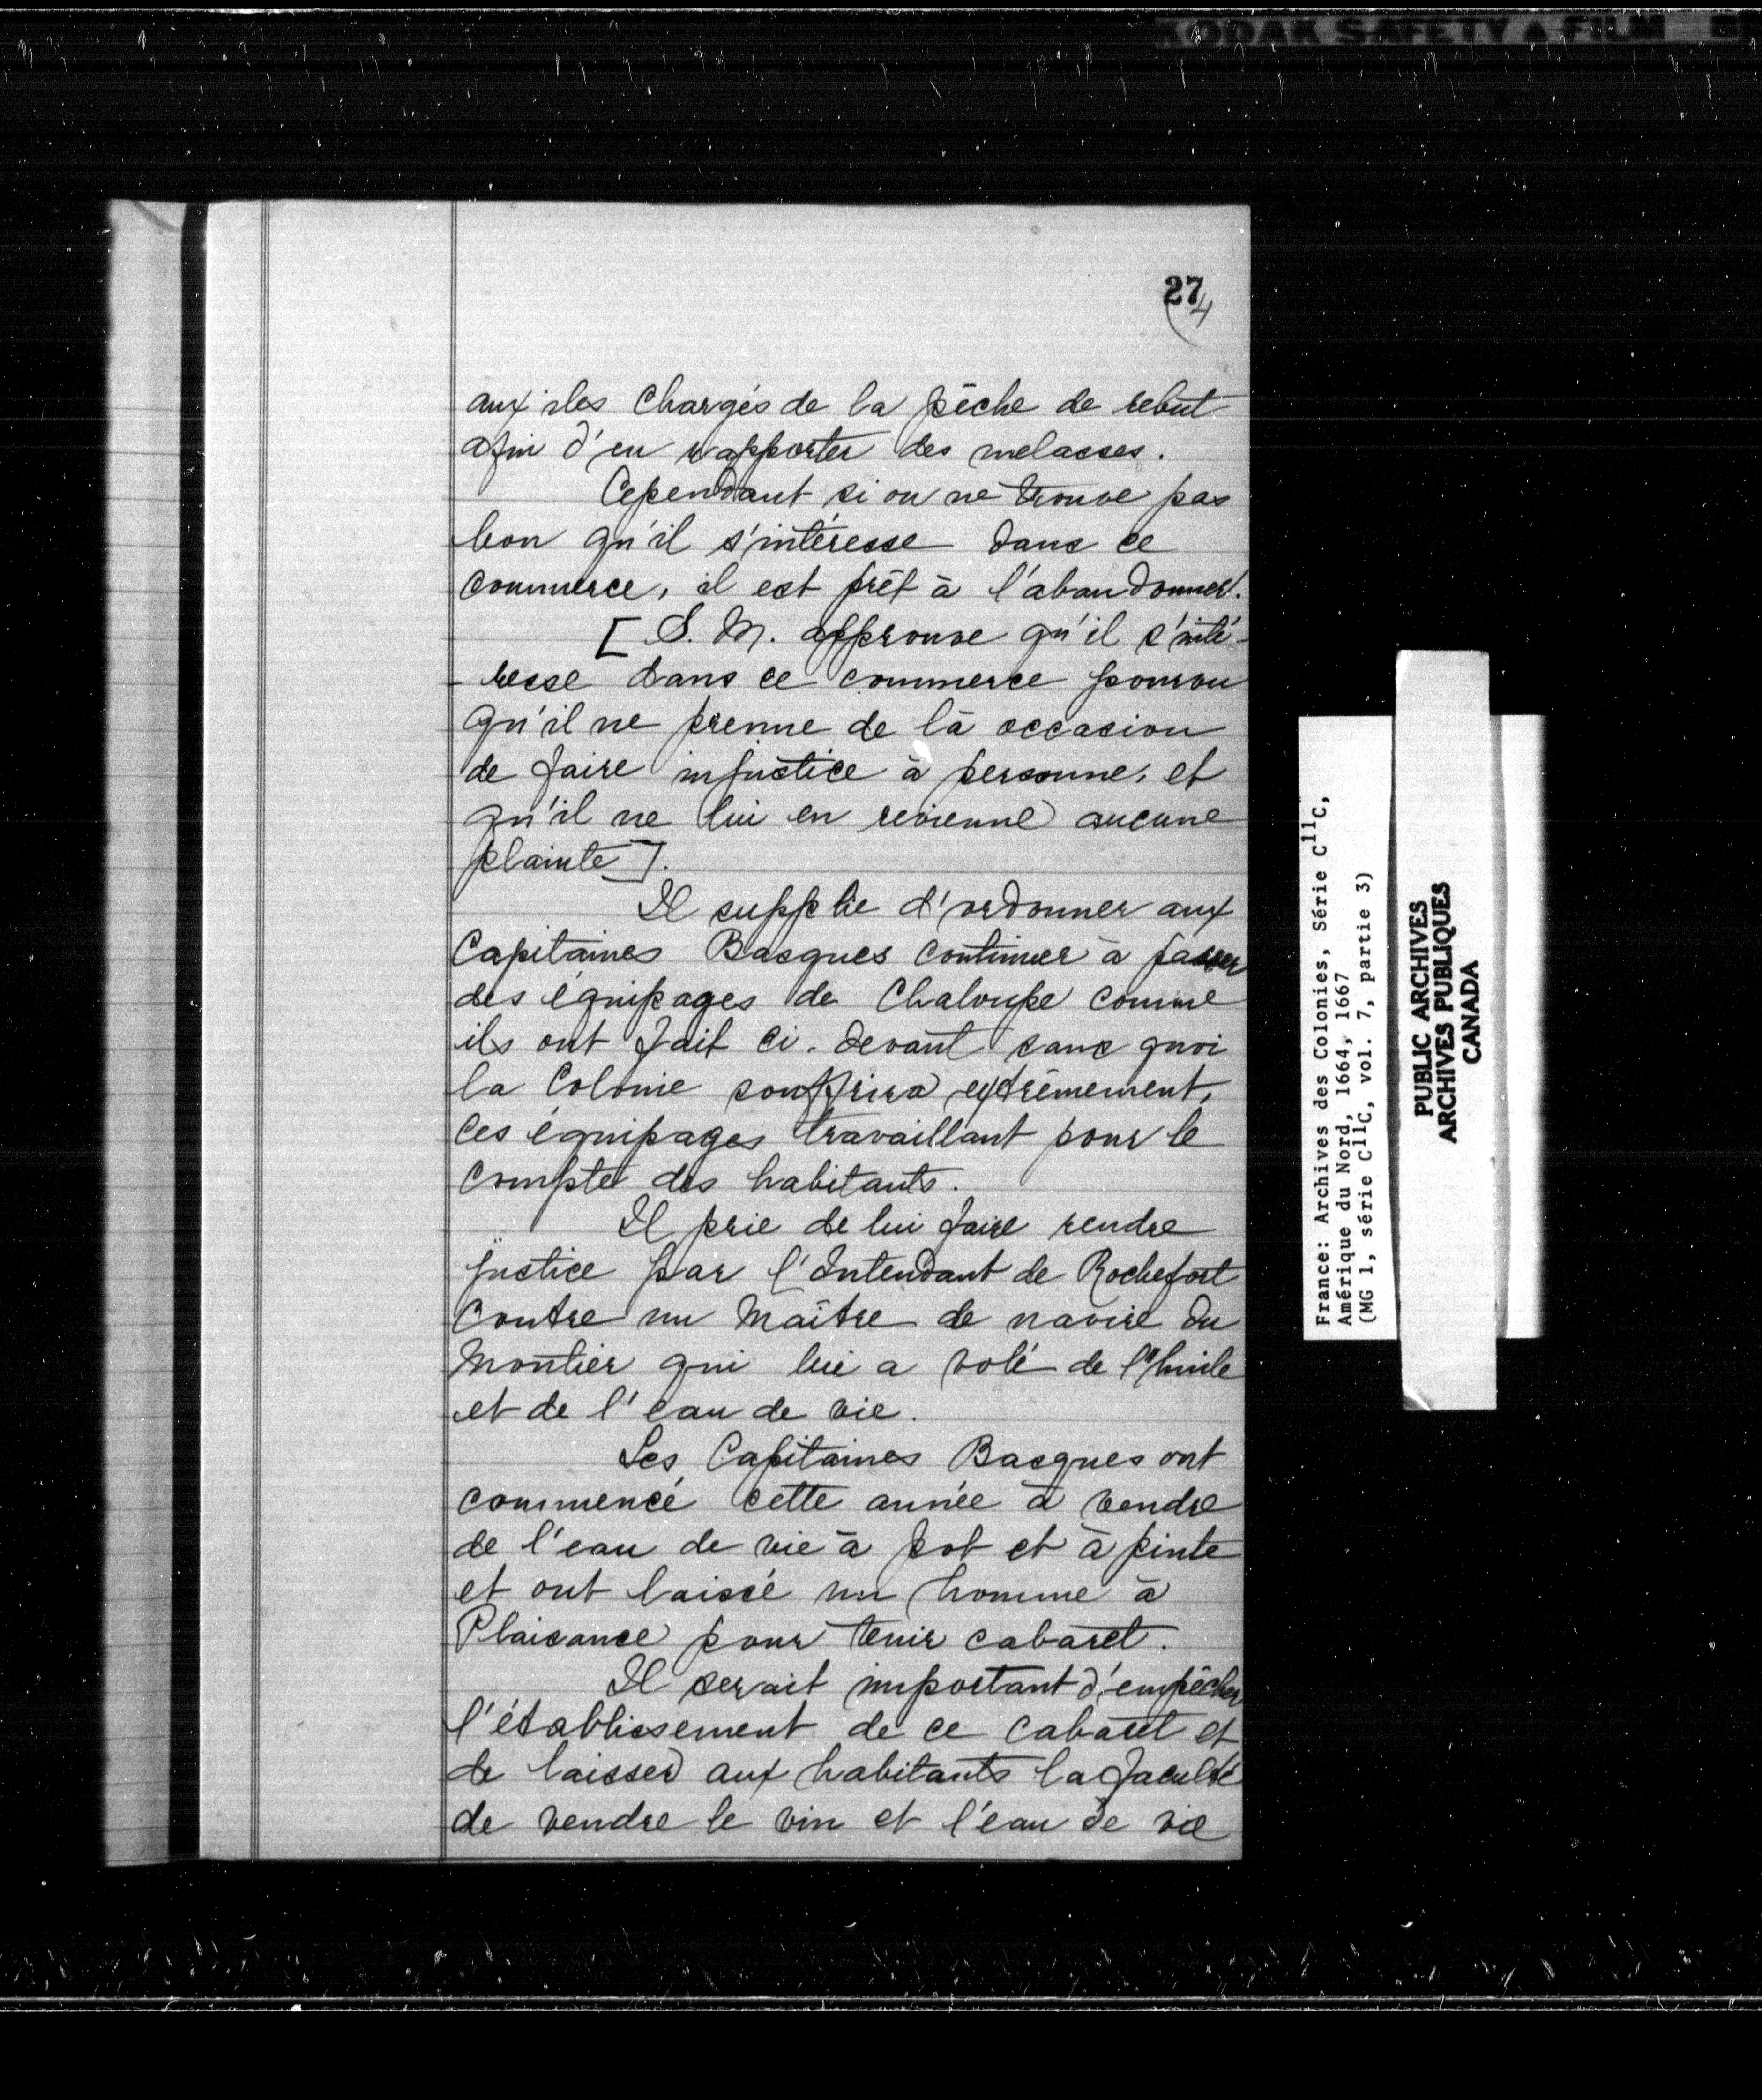 KODAK SAFETY FILM
274
aux iles chargés de la pêche de rebut
afin d'en rapporter des melasses.
Cependant si on ne trouve pas
bon qu'il s'intéresse dans ce
commerce, il est prêt à l'abandonner.
[ S. M. approuve qu'il s'inté-
-resse dans ce commerce pourvu
qu'il ne prenne de là occasion
de faire injustice à personne, et
qu'il ne lui en revienne aucune
plainte ].
Il supplie d'ordonner aux
Capitaines Basques continuer à passer
des équipages de Chaloupe comme
ils ont fait ci-devant sans quoi
la Colonie souffrira extrêmement,
ces équipages travaillant pour le
compte des habitants.
Il prie de lui faire rendre
justice par l'Intendant de Rochefort
contre un Maître de navire du
Montier qui lui a volé de l'huile
et de l'eau de vie.
Les Capitaines Basques ont
commencé cette année à vendre
de l'eau de vie à pot et à pinte
et ont laissé un homme à
Plaisance pour tenir cabaret.
Il serait important d'empêcher
l'établissement de ce cabaret et
de laisser aux habitants la faculté
de vendre le vin et l'eau de vie
France: Archives des Colonies, Série C11C,
Amérique du Nord, 1664, 1667
(MG 1, série C11C, vol. 7, partie 3)
PUBLIC ARCHIVES
ARCHIVES PUBLIQUES
CANADA